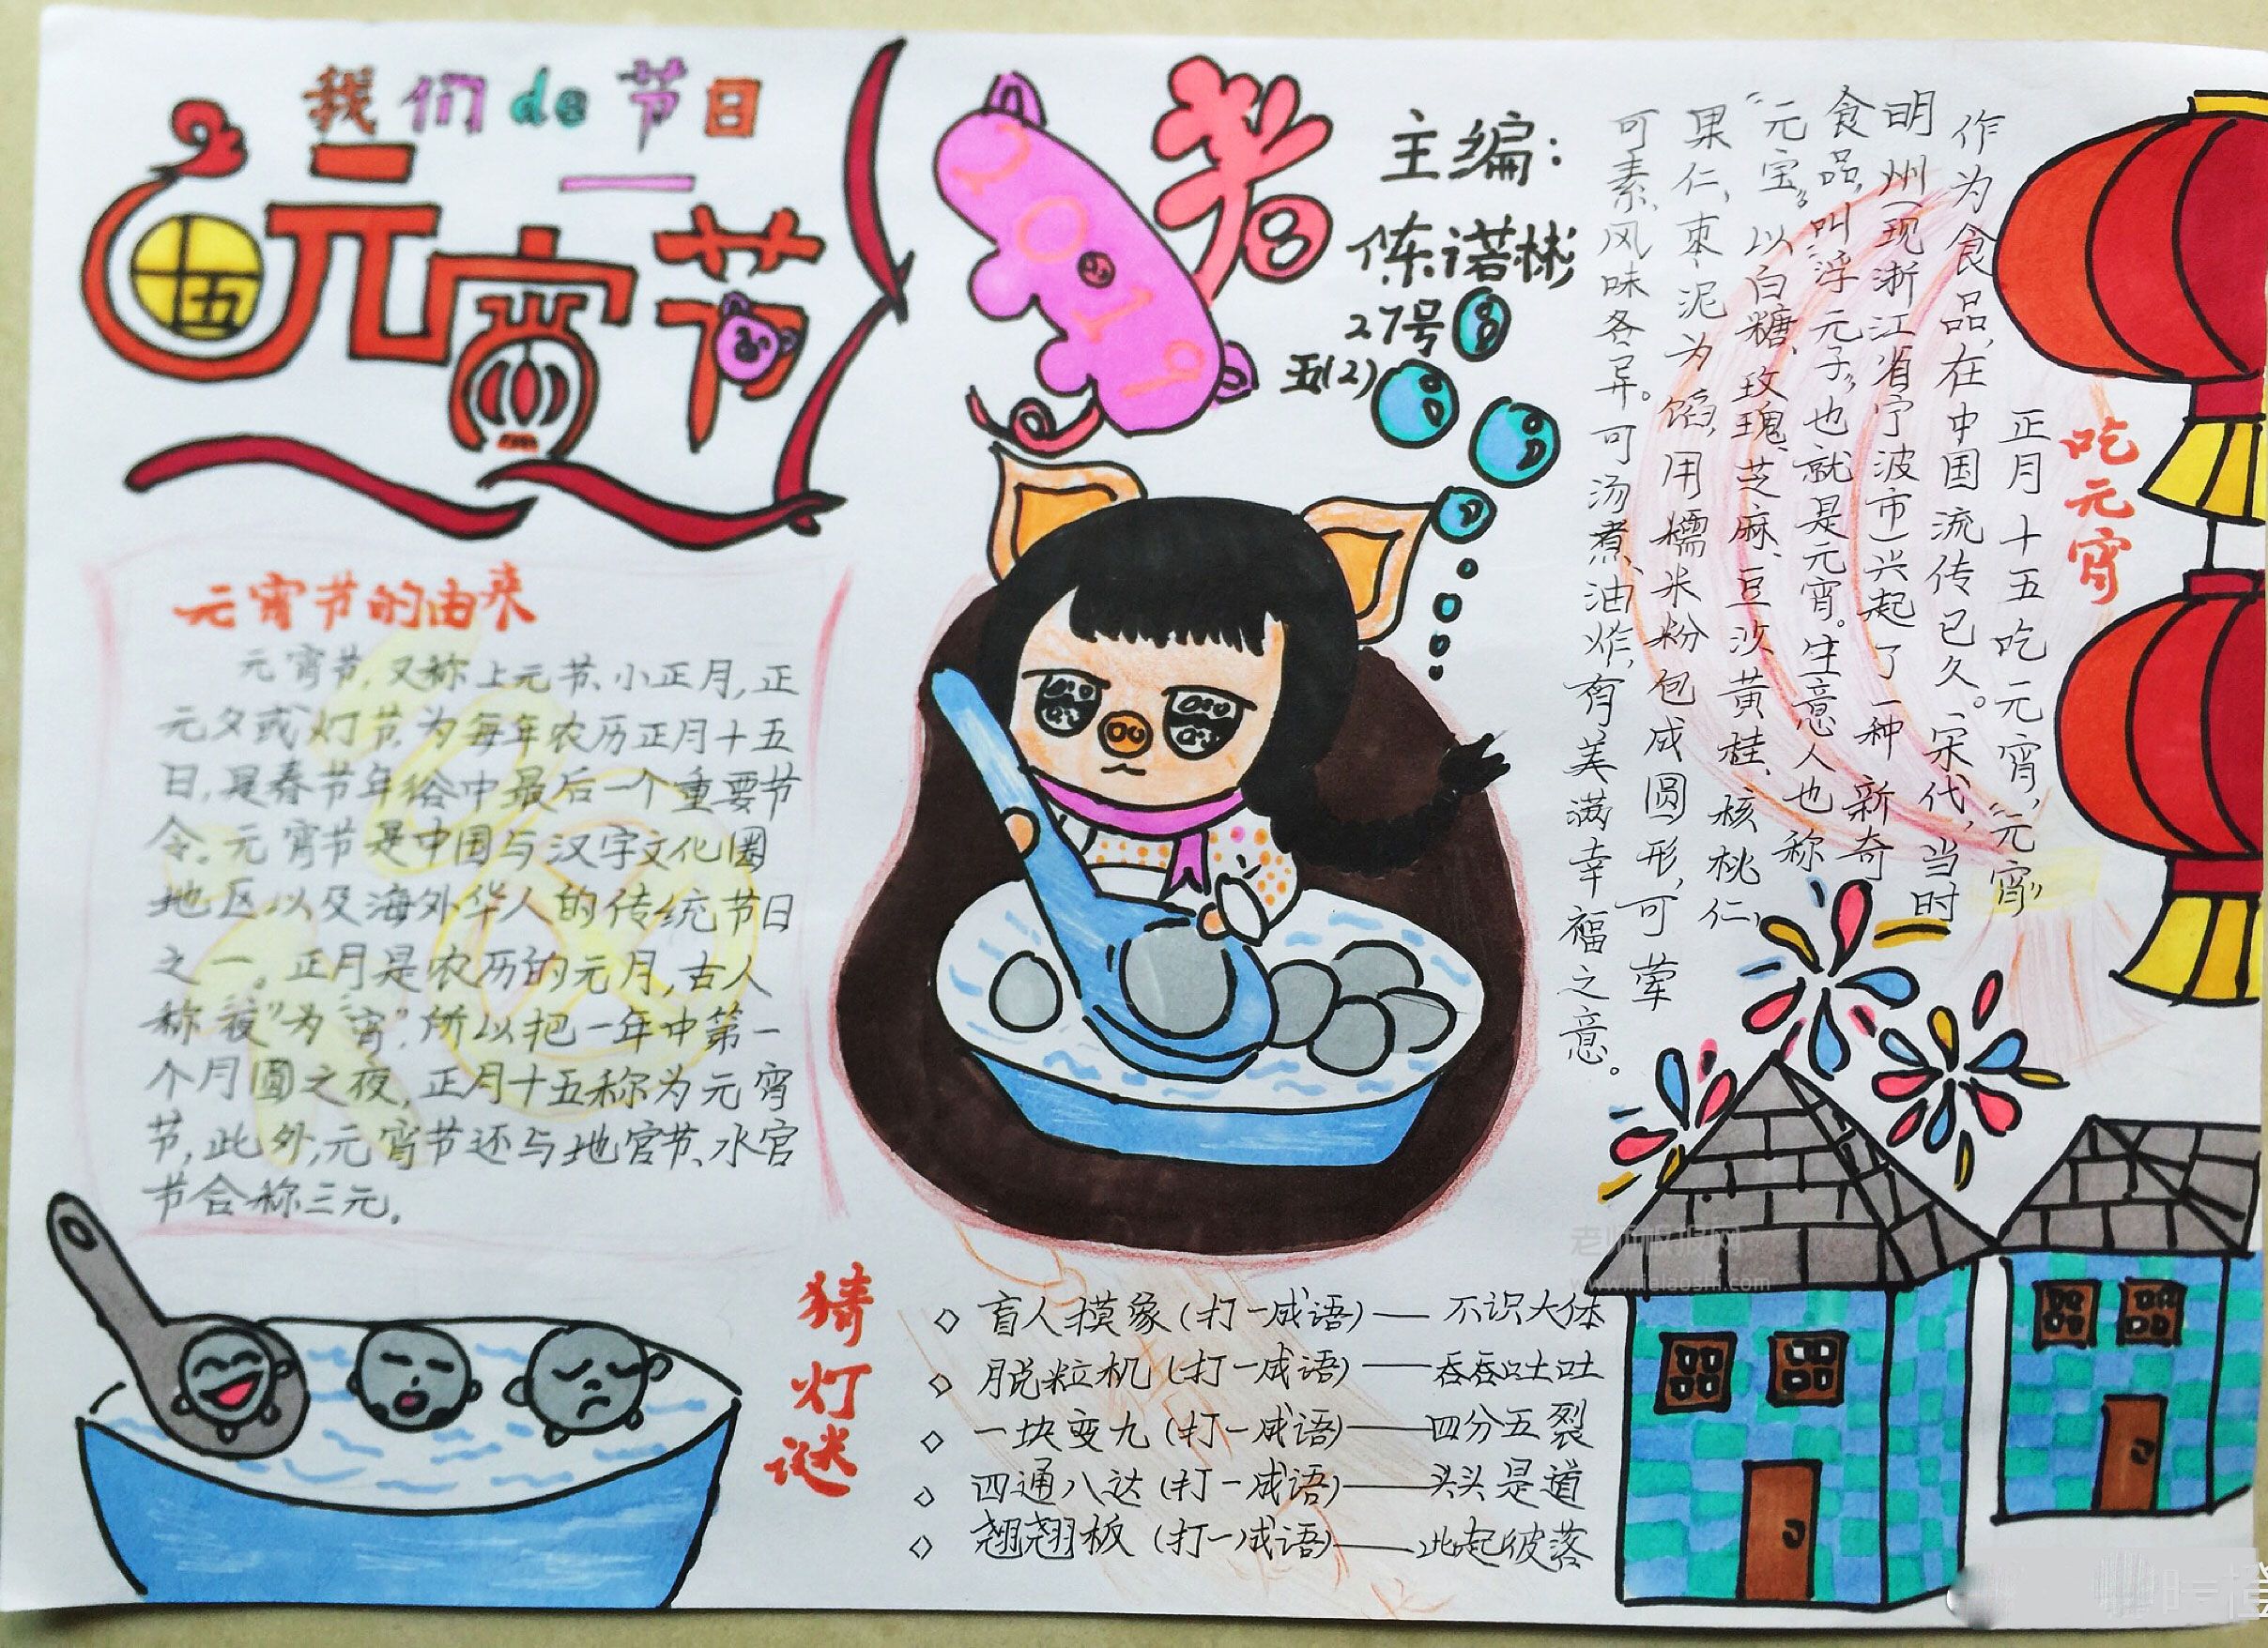 我们de节日
十五
元宵节
2019
猪
主编:
陈诺彬
27号
五(2)
元宵节的由来
元宵节,又称上元节、小正月,正
元夕或灯节,为每年农历正月十五
日,是春节年俗中最后一个重要节
令。元宵节是中国与汉字文化圈
地区以及海外华人的传统节日
之一。正月是农历的元月,古人
称"夜"为"宵",所以把一年中第一
个月圆之夜,正月十五称为元宵
节,此外,元宵节还与地官节、水官
节合称三元。
吃元宵
正月十五吃元宵,"元宵"
作为食品,在中国流传已久。宋代,当时
明州(现浙江省宁波市)兴起了一种新奇
食品,叫"浮元子",也就是元宵。生意人也称
"元宝"。以白糖、玫瑰、芝麻、豆沙、黄桂、核桃仁、
果仁、枣泥为馅,用糯米粉包成圆形,可荤
可素,风味各异。可汤煮、油炸,有美满幸福之意。
猜灯谜
◇ 盲人摸象(打一成语)——不识大体
◇ 脱粒机(打一成语)——吞吞吐吐
◇ 一块变九(打一成语)——四分五裂
◇ 四通八达(打一成语)——头头是道
◇ 翘翘板(打一成语)——此起彼落
老师板报网